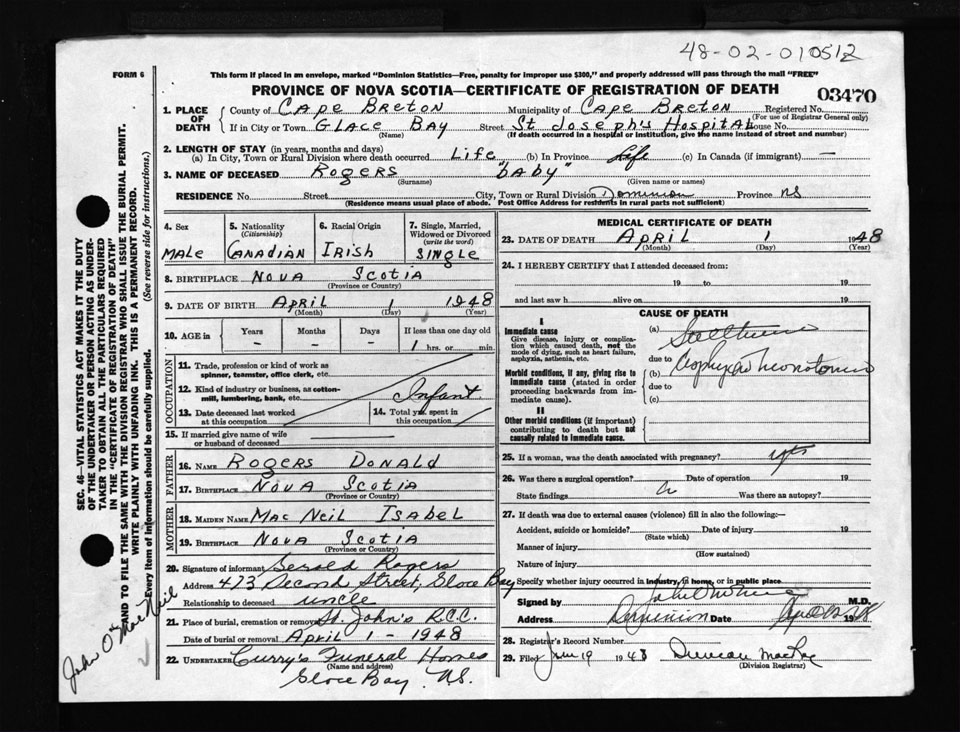 48-02-010512
FORM 6
This form if placed in an envelope, marked "Dominion Statistics—Free, penalty for improper use $300," and properly addressed will pass through the mail "FREE"
PROVINCE OF NOVA SCOTIA—CERTIFICATE OF REGISTRATION OF DEATH
03470
1. PLACE OF DEATH
County of Cape Breton Municipality of Cape Breton Registered No.
(For use of Registrar General only)
If in City or Town Glace Bay Street St Joseph's Hospital House No.
(Name) (If death occurred in a hospital or institution, give the name instead of street and number)
2. LENGTH OF STAY (in years, months and days)
(a) In City, Town or Rural Division where death occurred Life (b) In Province Life (c) In Canada (if immigrant) —
3. NAME OF DECEASED Rogers "baby"
(Surname) (Given name or names)
RESIDENCE No. Street City, Town or Rural Division Dominion Province NS
(Residence means usual place of abode. Post Office Address for residents in rural parts not sufficient)
4. Sex
Male
5. Nationality
(Citizenship)
Canadian
6. Racial Origin
Irish
7. Single, Married, Widowed or Divorced
(write the word)
Single
8. BIRTHPLACE Nova Scotia
(Province or Country)
9. DATE OF BIRTH April 1 1948
(Month) (Day) (Year)
10. AGE in
Years Months Days If less than one day old
- - - 1 hrs. or min.
OCCUPATION
11. Trade, profession or kind of work as spinner, teamster, office clerk, etc.
12. Kind of industry or business, as cotton-mill, lumbering, bank, etc.
Infant
13. Date deceased last worked at this occupation
14. Total yrs. spent in this occupation
15. If married give name of wife or husband of deceased
FATHER
16. NAME Rogers Donald
17. BIRTHPLACE Nova Scotia
(Province or Country)
MOTHER
18. MAIDEN NAME Mac Neil Isabel
19. BIRTHPLACE Nova Scotia
(Province or Country)
20. Signature of informant Gerald Rogers
Address 473 Second Street, Glace Bay
Relationship to deceased uncle
21. Place of burial, cremation or removal St. John's R.C.C.
Date of burial or removal April 1 - 1948
22. UNDERTAKER Curry's Funeral Homes
(Name and address)
Glace Bay, NS.
MEDICAL CERTIFICATE OF DEATH
23. DATE OF DEATH April 1 1948
(Month) (Day) (Year)
24. I HEREBY CERTIFY that I attended deceased from:
19 to 19
and last saw h alive on 19
CAUSE OF DEATH
I
Immediate cause
Give disease, injury or complication which caused death, not the mode of dying, such as heart failure, asphyxia, asthenia, etc.
(a)
due to
Morbid conditions, if any, giving rise to immediate cause (stated in order proceeding backwards from immediate cause).
(b) Asphyxia
due to
(c)
II
Other morbid conditions (if important) contributing to death but not causally related to immediate cause.
25. If a woman, was the death associated with pregnancy?
26. Was there a surgical operation? Date of operation 19
State findings Was there autopsy?
27. If death was due to external causes (violence) fill in also the following:—
Accident, suicide or homicide? Date of injury 19
(State which)
Manner of injury
(How sustained)
Nature of injury
Specify whether injury occurred in industry, in home, or in public place
Signed by M.D.
Address Dominion Date 1948
28. Registrar's Record Number
29. Filed June 19 1948 Duncan MacRae
(Division Registrar)
SEC. 46—VITAL STATISTICS ACT MAKES IT THE DUTY
OF THE UNDERTAKER OR PERSON ACTING AS UNDERTAKER TO OBTAIN ALL THE PARTICULARS REQUIRED
IN THE "CERTIFICATE OF REGISTRATION OF DEATH"
AND TO FILE THE SAME WITH THE DIVISION REGISTRAR WHO SHALL ISSUE THE BURIAL PERMIT.
WRITE PLAINLY WITH UNFADING INK. THIS IS A PERMANENT RECORD.
Every item of information should be carefully supplied. (See reverse side for instructions.)
John O. MacNeil